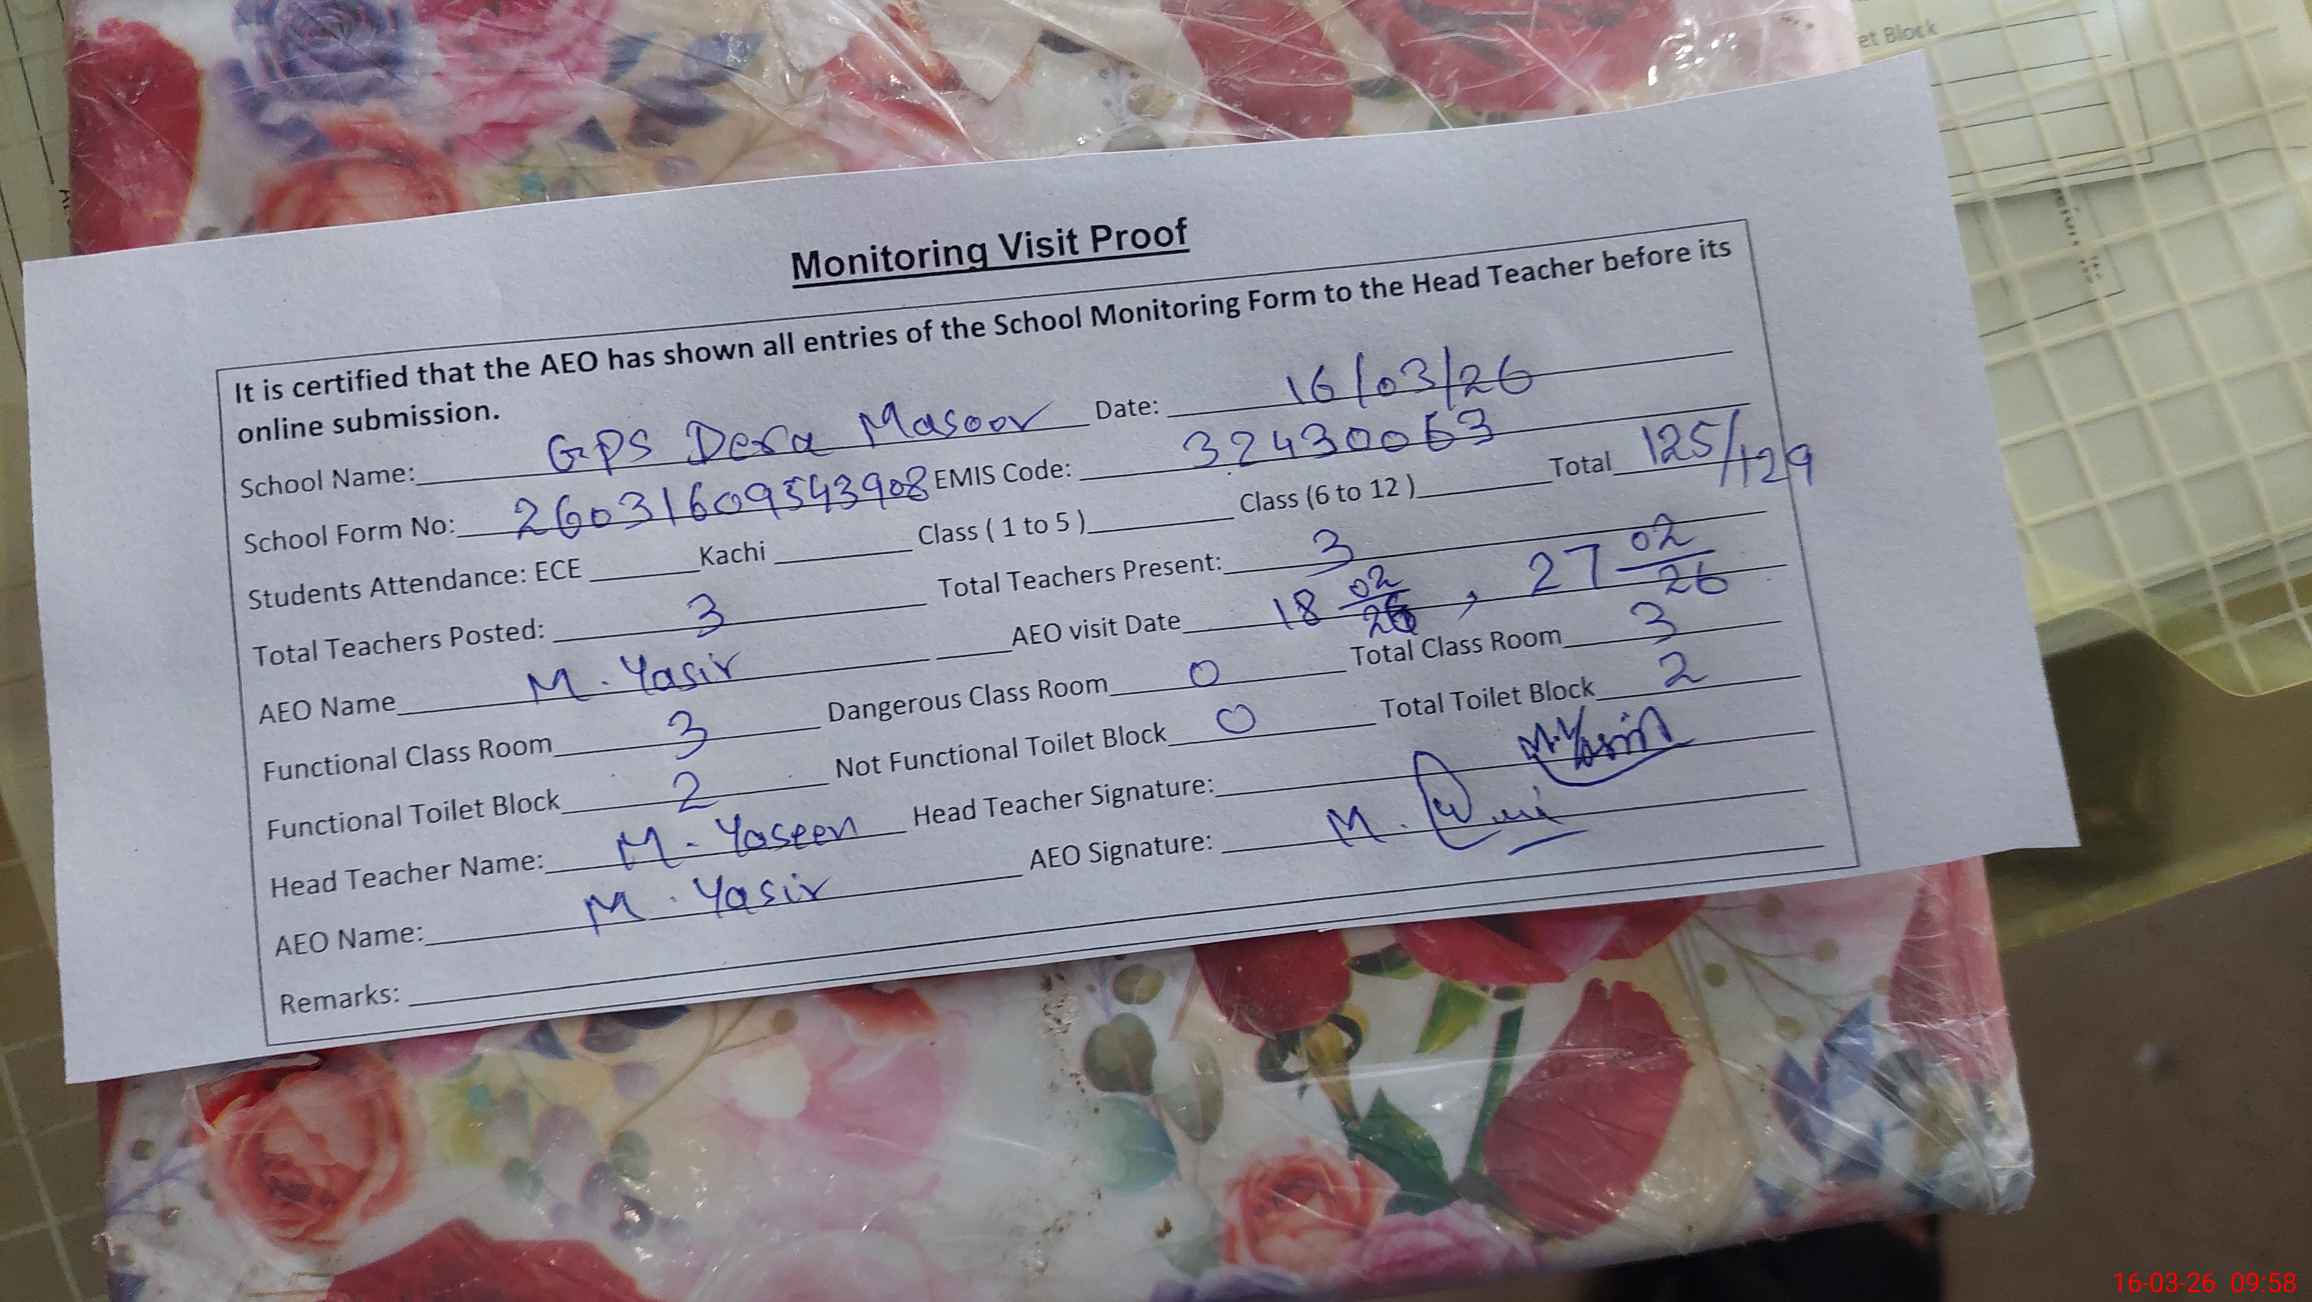 et Block
Monitoring Visit Proof
It is certified that the AEO has shown all entries of the School Monitoring Form to the Head Teacher before its
online submission.
School Name: GPS Dera Masoor Date: 16/03/26
School Form No: 260316095943908 EMIS Code: 32430063
Students Attendance: ECE Kachi Class ( 1 to 5 ) Class (6 to 12 ) Total 125/129
Total Teachers Posted: 3 Total Teachers Present: 3
AEO Name M. Yasir AEO visit Date 18 02/26 , 27 02/26
Functional Class Room 3 Dangerous Class Room 0 Total Class Room 3
Functional Toilet Block 2 Not Functional Toilet Block 0 Total Toilet Block 2
Head Teacher Name: M. Yaseen Head Teacher Signature:
AEO Name: M. Yasir AEO Signature:
Remarks:
16-03-26 09:58